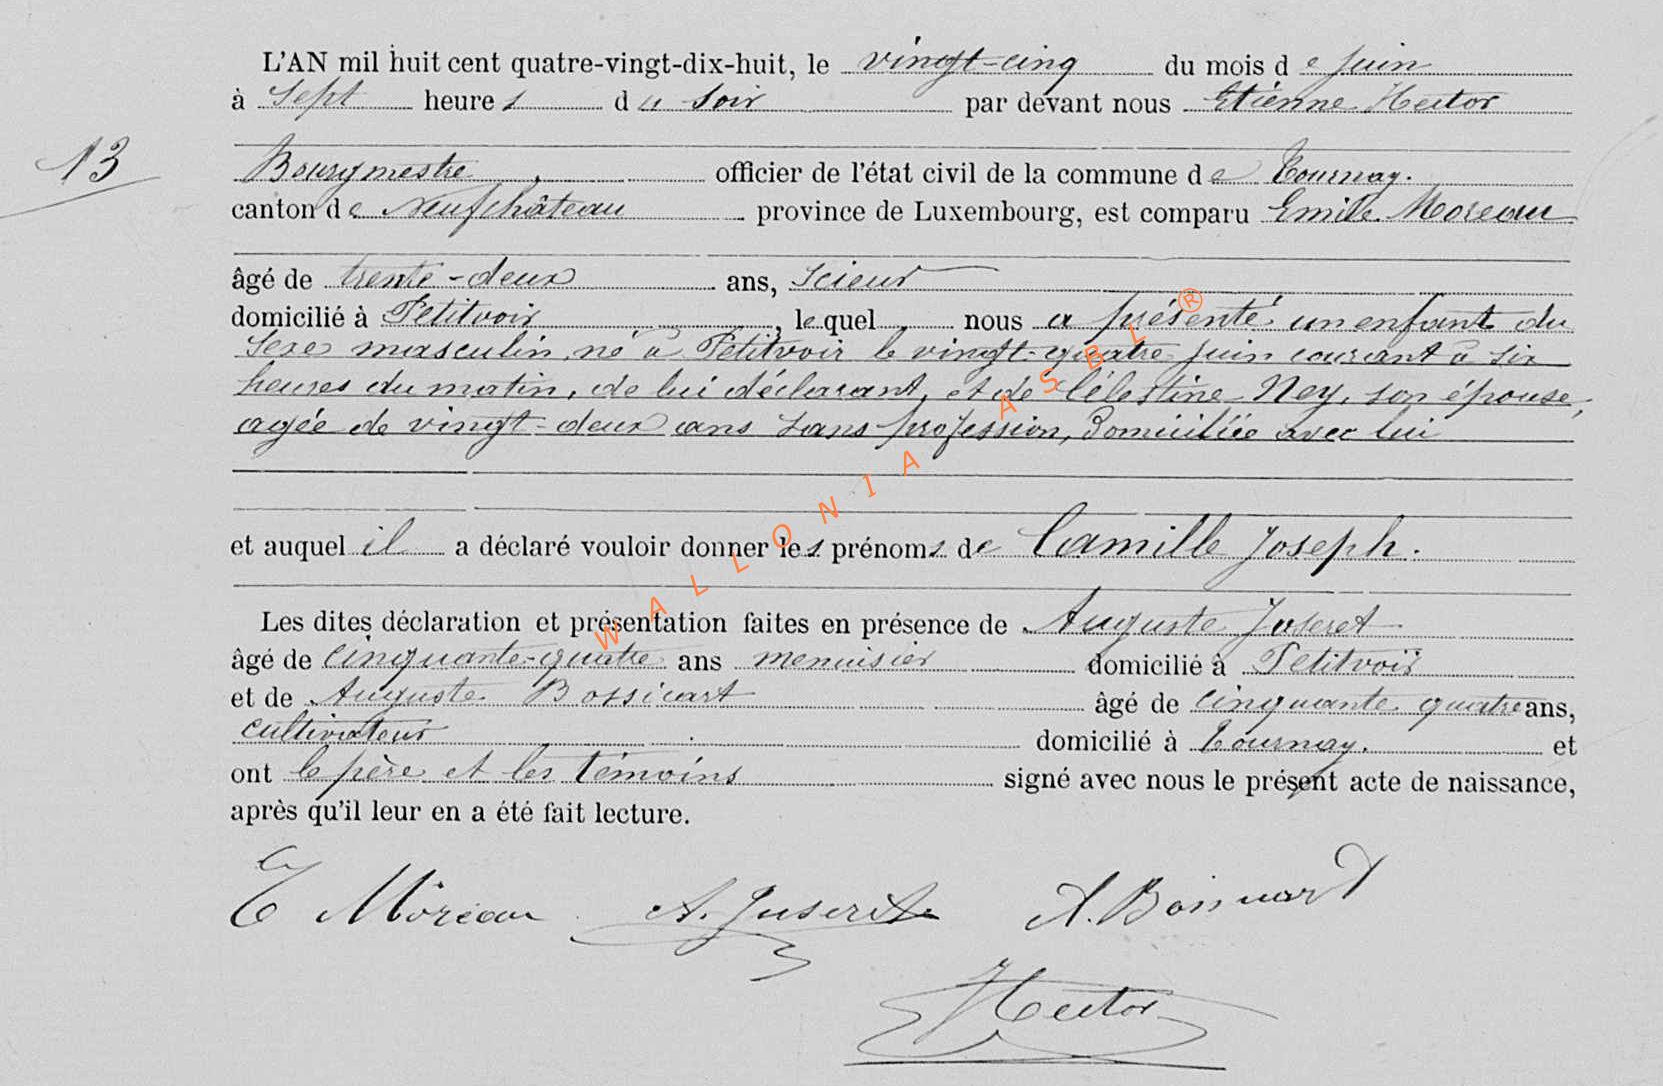 L'AN mil huit cent quatre-vingt-dix-huit, le vingt-cinq du mois de juin
à sept heures du soir par devant nous Etienne Hector
13
Bourgmestre, officier de l'état civil de la commune de Tournay.
canton de Neufchâteau province de Luxembourg, est comparu Emile Moreau
âgé de trente-deux ans, scieur
domicilié à Petitvoir, lequel nous a présenté un enfant du
sexe masculin, né à Petitvoir le vingt-quatre juin courant à six
heures du matin, de lui déclarant, et de Célestine Ney, son épouse,
agée de vingt-deux ans sans profession, domiciliée avec lui
et auquel il a déclaré vouloir donner les prénoms de Camille Joseph.
Les dites déclaration et présentation faites en présence de Auguste Juseret
âgé de cinquante-quatre ans menuisier domicilié à Petitvoir
et de Auguste Bossicart âgé de cinquante quatre ans,
cultivateur domicilié à Tournay. et
ont le père et les témoins signé avec nous le présent acte de naissance,
après qu'il leur en a été fait lecture.
E Moreau A. Juseret A. Bossicart
Hector
WALLONIA ASBL ®